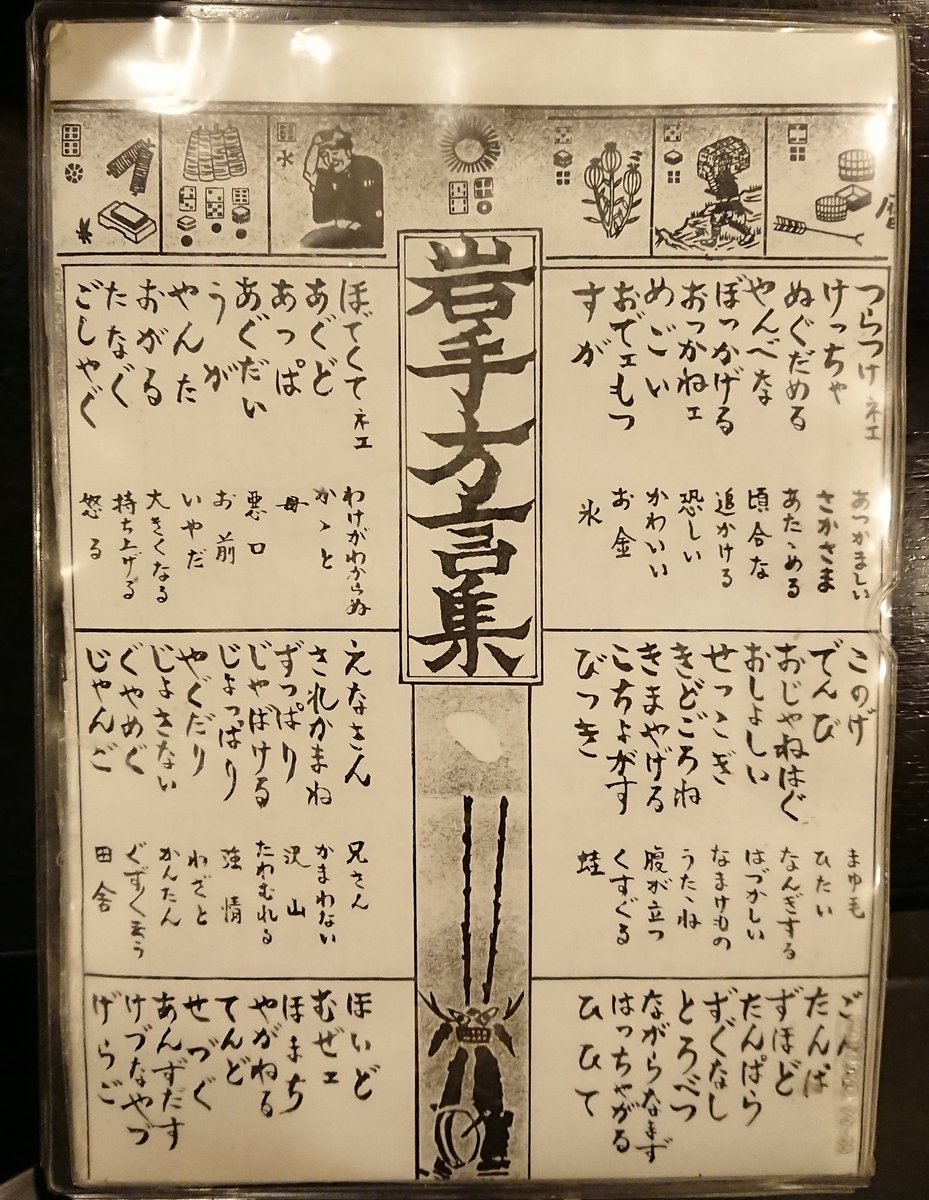 暦
岩手方言集
つらつけネエ
けっちゃ
ぬぐだめる
やんべな
ぼっかげる
おっかねェ
めごい
おでェもつ
すが
あつかましい
さかさま
あたゝめる
頃合な
追かける
恐しい
かわいい
お金
氷
ほでくてネエ
あぐど
あっぱ
あぐだい
うが
やんた
おがる
たなぐ
ごしゃぐ
わけがわからぬ
かゝと
母
悪口
お前
いやだ
大きくなる
持ち上げる
怒る
このげ
でんび
おじゃねはぐ
おしょしい
せっこぎ
きどごろね
きまやげる
こちょがす
びっき
まゆ毛
ひたい
なんぎする
はづかしい
なまけもの
うたゝね
腹が立つ
くすぐる
蛙
えなさん
されかまね
ずっぱり
じゃばける
じょっぱり
やぐだり
じょさない
ぐやめぐ
じゃんご
兄さん
かまわない
沢山
たわむれる
強情
わざと
かんたん
ぐずぐず云う
田舎
たんぱ
ずほど
たんぱら
ずぐなし
とろべつ
ながらなまず
はっちゃがる
ひひて
ほいど
むぜェ
ほまち
やがねる
てんど
せづぐ
あんずだす
けづなやづ
げらご